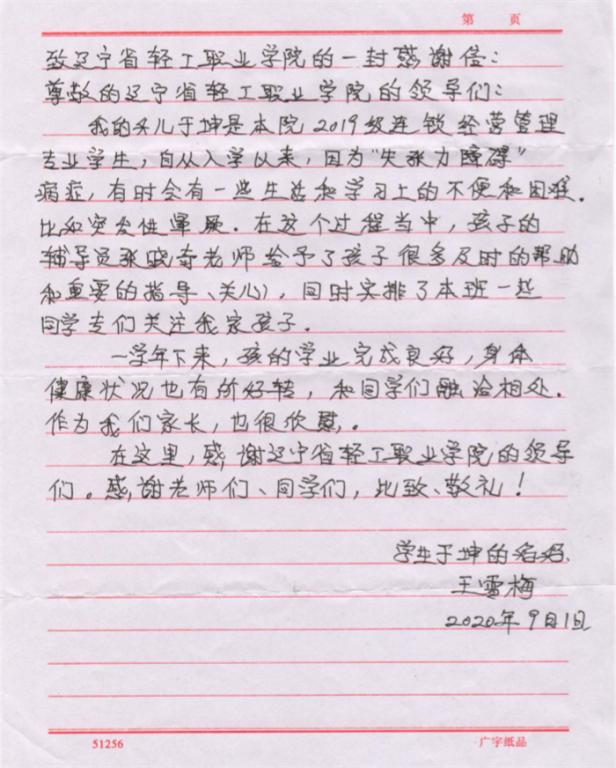 第 页
致辽宁省轻工职业学院的一封感谢信：
尊敬的辽宁省轻工职业学院的领导们：
我的女儿于坤是本院2019级连锁经营管理
专业学生，自从入学以来，因为“失张力障碍”
病症，有时会有一些生活和学习上的不便和困难。
比如突发性晕厥。在这个过程当中，孩子的
辅导员张 奇老师给予了孩子很多及时的帮助
和重要的指导、关心，同时安排了本班一些
同学专们关注我家孩子。
一学年下来，孩的学业完成良好，身体
健康状况也有所好转，和同学们融洽相处。
作为我们家长，也很欣慰。
在这里，感谢辽宁省轻工职业学院的领导
们。感谢老师们、同学们，此致、敬礼！
学生于坤的妈妈
王雪梅
2020年9月1日
51256 广宇纸品